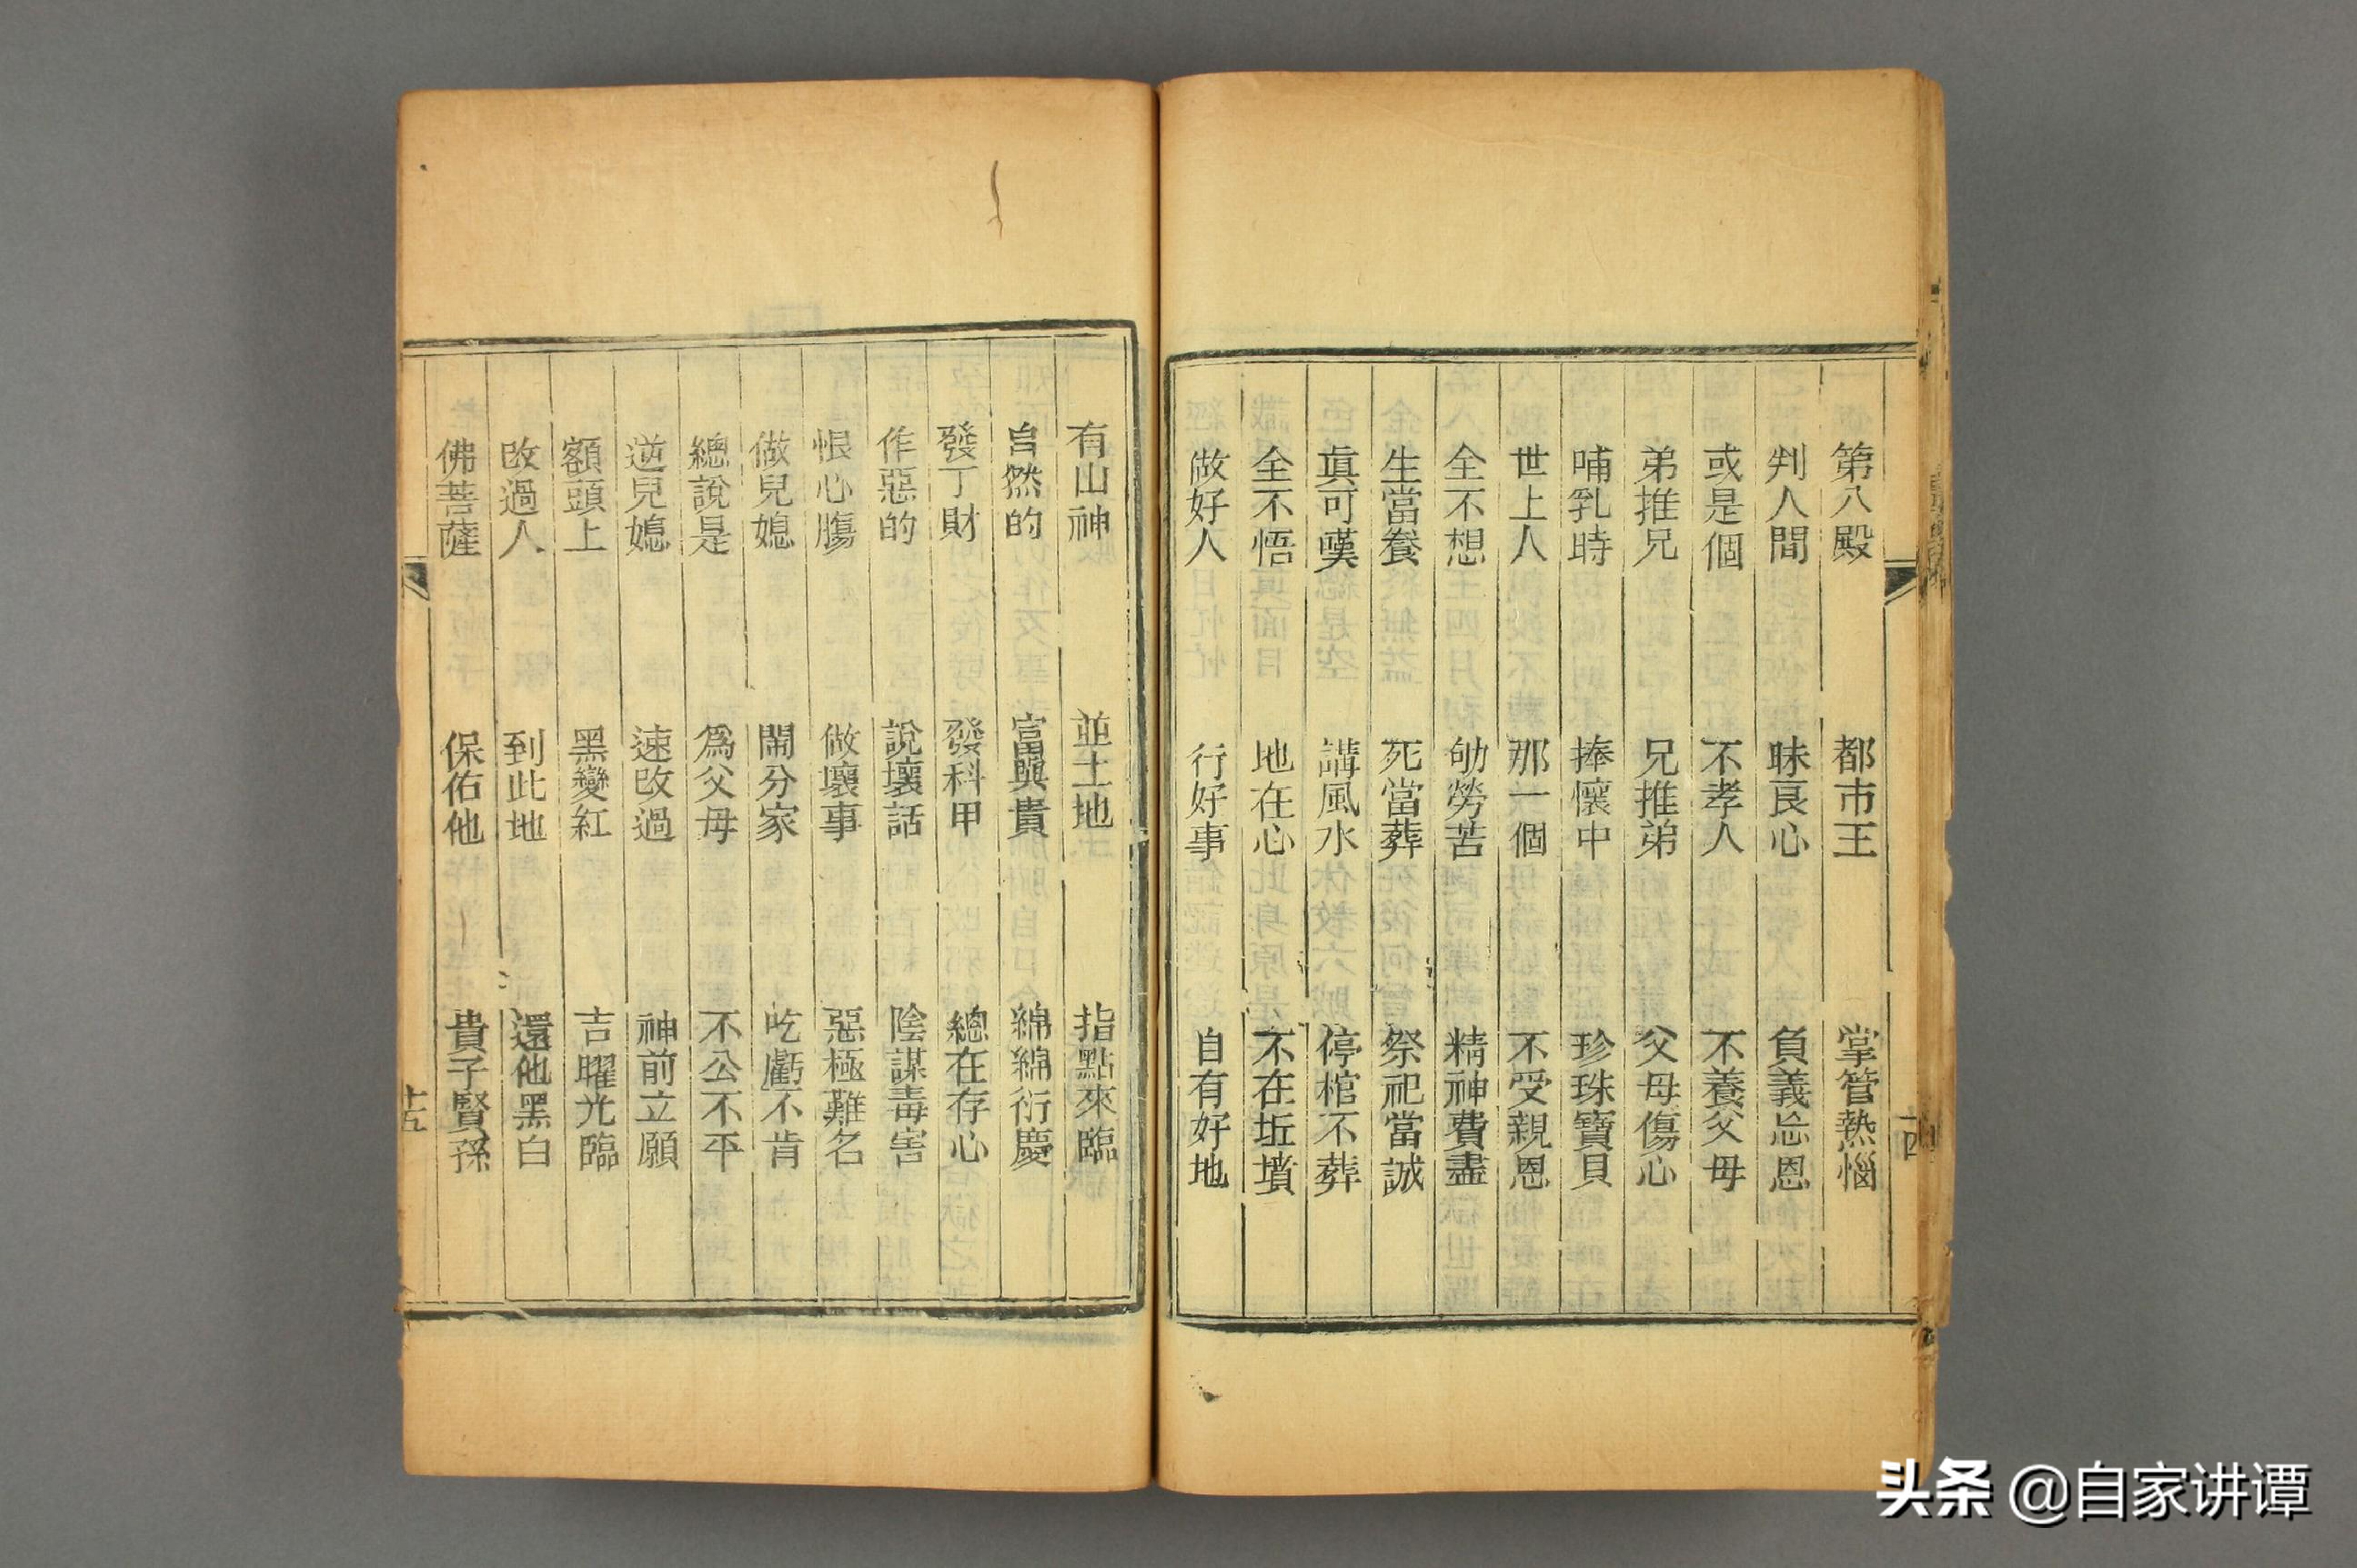 第八殿 都市王 掌管熱惱
判人間 昧良心 負義忘恩
或是個 不孝人 不養父母
弟推兄 兄推弟 父母傷心
哺乳時 捧懷中 珍珠寶貝
世上人 那一個 不受親恩
全不想 劬勞苦 精神費盡
生當養 死當葬 祭祀當誠
眞可嘆 講風水 停棺不葬
全不悟 地在心 不在坵墳
做好人 行好事 自有好地
十四
有山神 並土地 指點來臨
自然的 富與貴 綿綿衍慶
發丁財 發科甲 總在存心
作惡的 說壞話 陰謀毒害
恨心腸 做壞事 惡極難名
做兒媳 鬧分家 吃虧不肯
總說是 爲父母 不公不平
逆兒媳 速改過 神前立願
額頭上 黑變紅 吉曜光臨
改過人 到此地 還他黑白
佛菩薩 保佑他 貴子賢孫
十五
头条 @自家讲谭